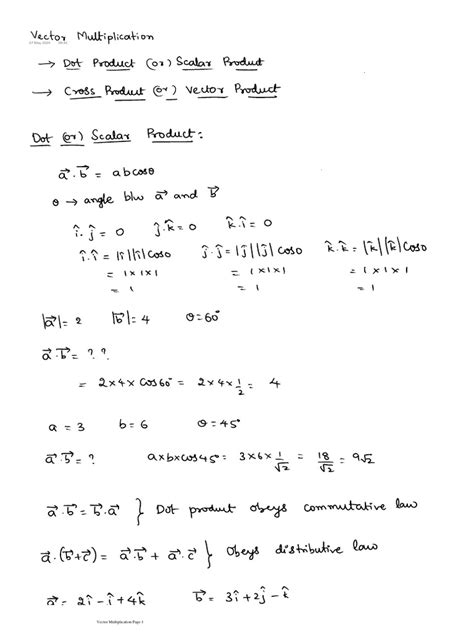 Vector Multiplication
→ Dot Product (or) Scalar Product
→ Cross Product (or) Vector Product
Dot (or) Scalar Product:
a⃗.b⃗ = abcosθ
θ → angle b/w a⃗ and b⃗
î.ĵ = 0 ĵ.k̂ = 0 k̂.î = 0
î.î = |î||î|cos0 ĵ.ĵ = |ĵ||ĵ|cos0 k̂.k̂ = |k̂||k̂|cos0
= 1×1×1 = 1×1×1 = 1×1×1
= 1 = 1 = 1
|a⃗| = 2 |b⃗| = 4 θ = 60°
a⃗.b⃗ = ? ?
= 2×4×cos60° = 2×4×1/2 = 4
a = 3 b = 6 θ = 45°
a⃗.b⃗ = ? a×b×cos45° = 3×6×1/√2 = 18/√2 = 9√2
a⃗.b⃗ = b⃗.a⃗ } Dot product obeys commutative law
a⃗.(b⃗+c⃗) = a⃗.b⃗ + a⃗.c⃗ } Obeys distributive law
a⃗ = 2î - î + 4k̂ b⃗ = 3î + 2ĵ - k̂
Vector Multiplication Page 1